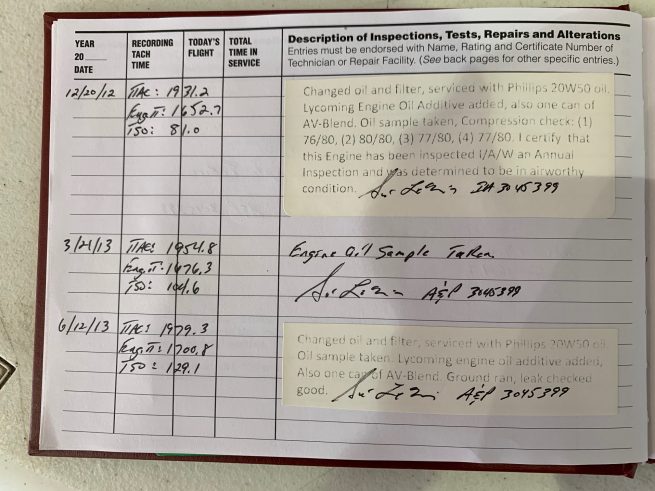 YEAR
20
DATE
RECORDING
TACH
TIME
TODAY'S
FLIGHT
TOTAL
TIME IN
SERVICE
Description of Inspections, Tests, Repairs and Alterations
Entries must be endorsed with Name, Rating and Certificate Number of
Technician or Repair Facility. (See back pages for other specific entries.)
12/20/12 TTAC: 1931.2
Eng TT: 1652.7
TSO: 81.0
Changed oil and filter, serviced with Phillips 20W50 oil.
Lycoming Engine Oil Additive added, also one can of
AV-Blend. Oil sample taken, Compression check: (1)
76/80, (2) 80/80, (3) 77/80, (4) 77/80. I certify that
this Engine has been inspected I/A/W an Annual
Inspection and was determined to be in airworthy
condition. IA 3045399
3/21/13 TTAC: 1954.8
Eng TT: 1676.3
TSO: 104.6
Engine Oil Sample Taken
A&P 3045399
6/12/13 TTAC: 1979.3
Eng TT: 1700.8
TSO: 129.1
Changed oil and filter, serviced with Phillips 20W50 oil.
Oil sample taken. Lycoming engine oil additive added,
Also one can of AV-Blend. Ground ran, leak checked
good. A&P 3045399